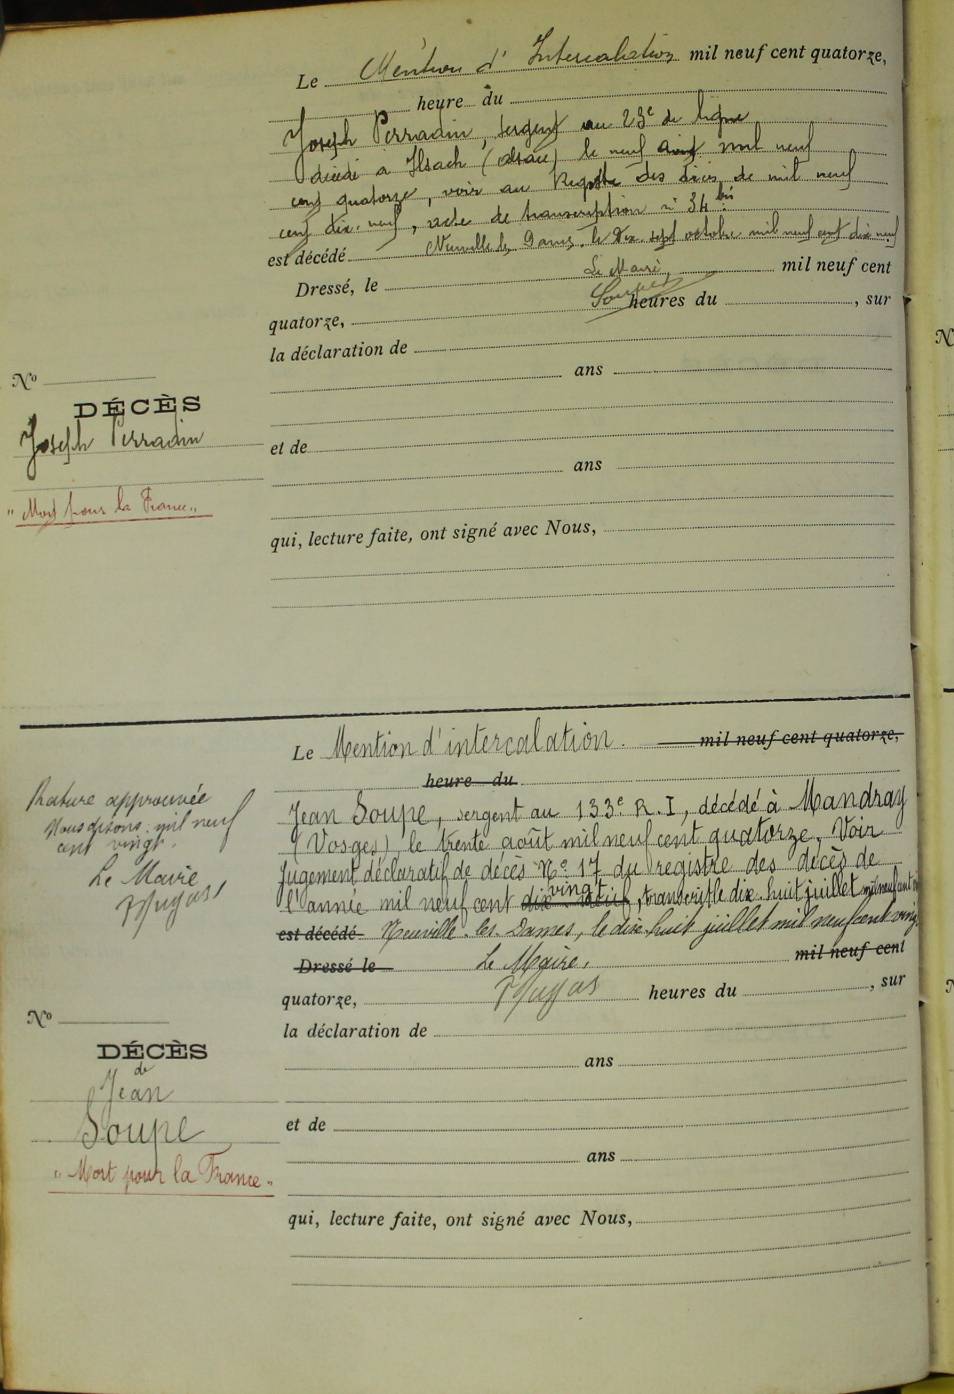 Le Mention d'Intercalation mil neuf cent quatorze,
heure du
Joseph Perradin, sergent au 23e de ligne
décédé a Ilsach (alsace) le neuf août mil neuf
cent quatorze, voir au Registre des décès de mil neuf
cent dix-neuf, acte de transcription n° 34 bis
est décédé Neuville les Dames, le dix sept octobre mil neuf cent dix neuf
Le Maire,
Dressé, le mil neuf cent
quatorze, heures du , sur
la déclaration de
ans
et de
ans
qui, lecture faite, ont signé avec Nous,
No
DÉCÈS
Joseph Perradin
"Mort pour la France"
Le Mention d'intercalation. mil neuf cent quatorze,
heure du
Jean Soupe, sergent au 133e R.I, décédé à Mandray
(Vosges), le trente août mil neuf cent quatorze. Voir
Jugement déclaratif de décès No 17 du registre des décès de
vingt
l'année mil neuf cent dix-neuf, transcrit le dix-huit juillet mil neuf cent
est décédé Neuville-les-Dames, le dix huit juillet mil neuf cent vingt
Dressé le Le Maire, mil neuf cent
quatorze, heures du , sur
la déclaration de
ans
et de
ans
qui, lecture faite, ont signé avec Nous,
Rature approuvée
Nous disons: mil neuf
cent vingt.
Le Maire
No
DÉCÈS
de
Jean
Soupe
"Mort pour la France"